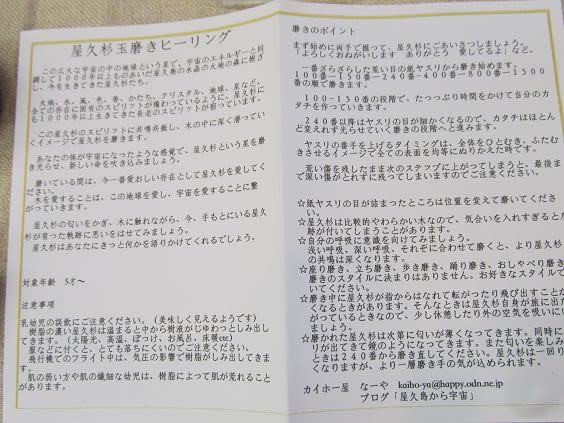 屋久杉玉磨きヒーリング
この広大な宇宙の中の地球という星で、宇宙のエネルギーと同
調して1000年以上ものあいだ屋久島の水晶の大地の森に根ざ
し、今を生きてきた屋久杉たち。
大地、水、風、色、香、かたち、クリスタル、地球、星など、
全ての存在に固有のスピリットが備わっているように、屋久杉に
も1000年以上生きてきた長老のスピリットが宿っています。
この屋久杉のスピリットに共鳴共振し、木の中に深く潜ってい
くイメージで屋久杉を磨きます。
あなたの体が宇宙になったような感覚で、屋久杉という星を磨
き光らせ、新しい命を吹き込みましょう。
磨いている間は、今一番愛おしい存在として屋久杉を愛してく
ださい。
木を愛することは、この地球を愛し、宇宙を愛することに繋
がっていきます。
屋久杉の匂いをかぎ、木に触れながら、今、手もとにいる屋久
杉が育った軌跡に思いをはせてみましょう。
屋久杉はあなたにきっと何かを語りかけてくれるでしょう。
対象年齢 5才～
注意事項
乳幼児の誤飲にご注意ください。(美味しく見えるようです)
樹脂の濃い屋久杉は温まると中から樹液がじゅわっとしみ出し
てきます。(太陽光、高温、ぽっけ、お風呂、床暖etc)
服などに付くと、とても落ちにくいのでご注意ください。
飛行機でのフライト中は、気圧の影響で樹脂がしみ出してきま
す。
肌の弱い方や肌の繊細な幼児は、樹脂によって肌が荒れること
があります。
磨きのポイント
まず始めに両手で握って、屋久杉にごあいさつしましょう。
「よろしくおねがいします ありがとう 愛してるよ」など。
一番ざらざらした荒い目の紙ヤスリから磨き始めます。
100番→150番→240番→400番→800番→1500
番の順で磨きます。
100-150番の段階で、たっぷり時間をかけて自分のカ
タチを作っていきます。
240番以降はヤスリの目が細かくなるので、カタチはほとん
ど変えれず光らせていく磨きの段階へと進みます。
ヤスリの番手を上げるタイミングは、全体をひとむき、ふたむ
きさせるイメージで全ての表面を均等にぬりかえた時です。
荒い傷を残したまま次のステップに上がってしまうと、最後ま
で深い傷が上れずに残ってしまいますのでご注意ください。
☆紙ヤスリの目が詰まったところは位置を変えて磨いてくださ
い。
☆屋久杉は比較的やわらかい木なので、気合いを入れすぎると爪
跡が付いてしまうことがあります。
☆自分の呼吸に意識を向けてみましょう。
浅い呼吸、深い呼吸、それぞれに合わせて磨くと、より屋久杉と
の共鳴は深くなります。
☆座り磨き、立ち磨き、歩き磨き、踊り磨き、おしゃべり磨き、磨
きのスタイルに決まりはありません。お好きなスタイルで磨
いてください。
☆磨き中に屋久杉が指からはなれて転がったり飛び出すことが多
くなるときがあります。そんなときは屋久杉自身が旅に出たが
っているときなので、少し休憩したり外の空気を吸いに行き
ましょう。
☆磨かれた屋久杉は次第に匂いが薄くなってきます。同時に磨
りが出てきて鏡のようになってきます。また匂いを楽しみたい
ときは240番から磨き直してください。屋久杉は一回り小さ
くなりますが、より一層磨き手の気が込められます。
カイホー屋 なーや kaiho-ya@happy.odn.ne.jp
ブログ「屋久島から宇宙」